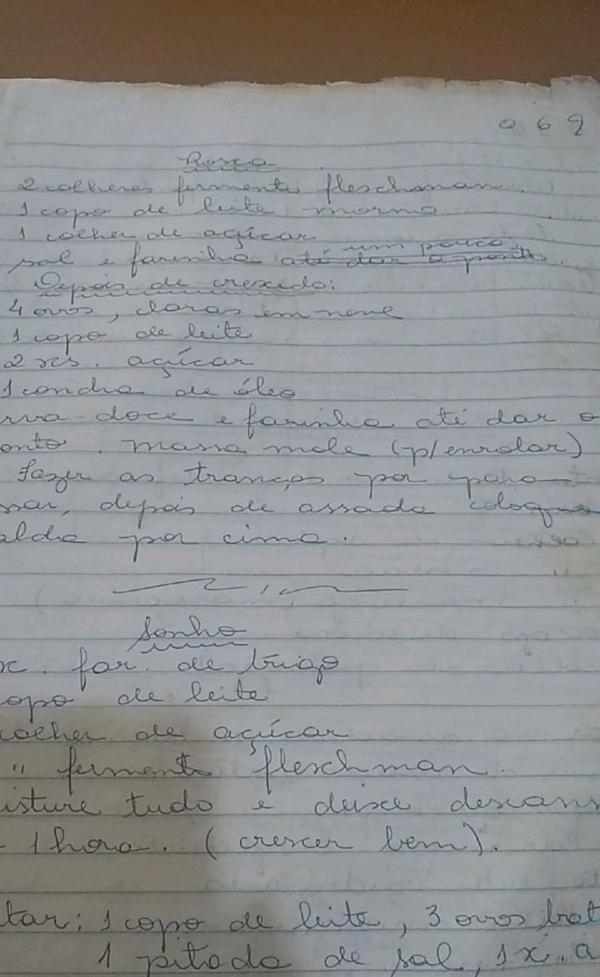 069
Rosca
2 colheres fermento fleschman.
1 copo de leite morno
1 colher de açúcar
sal e farinha até dar o ponto. um pouco
Depois de crescido:
4 ovos, claras em neve
1 copo de leite
2 xs. açúcar
1 concha de óleo
rva doce e farinha até dar o
onto. massa mole (p/enrolar)
Fazer as tranças por para
sar, depois de assada coloque
alda por cima.
Sonho
x. far. de trigo
copo de leite
colher de açúcar
" fermento fleschman.
isture tudo e deixe descans
1 hora. (crescer bem).
tar: 1 copo de leite, 3 ovos bat
1 pitada de sal, 1 x. a